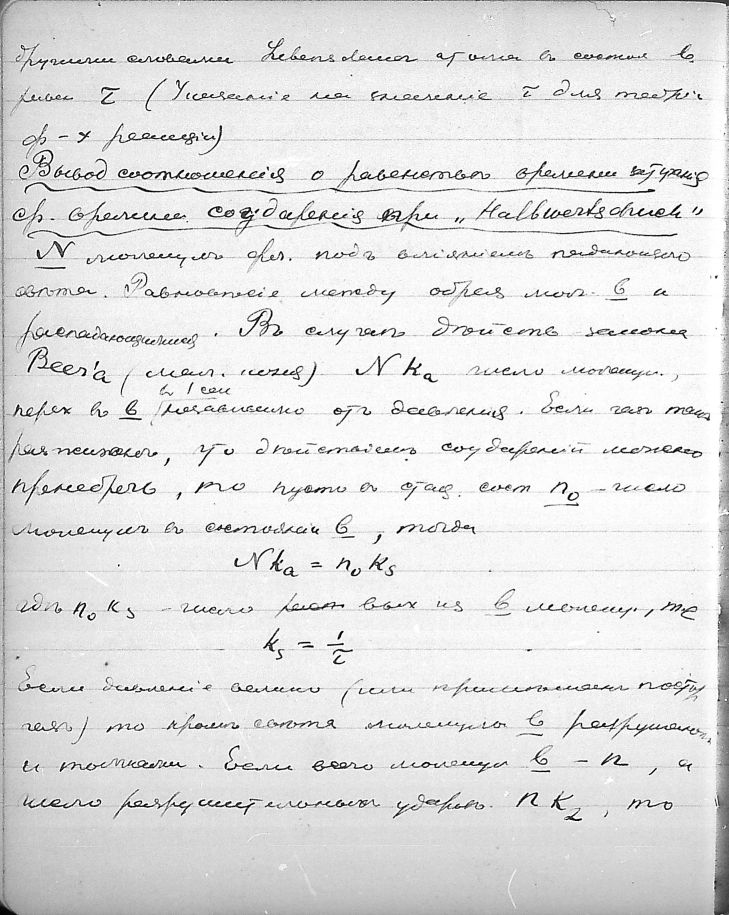 другими словами Lebensdauer атома в состоя в
равен τ (Указанiе на значенiе τ для теорiи
ф-х реакцiи)
Вывод соотношенiя о равенстве времени затуханiя
ср. времени соударенiя при „Halbwertsdruck"
N молекулъ фл. подъ влiянiемъ падающаго
света. Равновесiе между образ мол. в и
распадающимися. Въ случаѣ действ закона
Beer'a (мал. конц) N ka число молекул.,
перех въ в в 1 сек независимо отъ давленiя. Если газъ так
разжиженъ, что действiемъ соударенiй можно
пренебречь, то пусть в стац. сост n₀ – число
молекулъ в состоянiи в, тогда
N ka = n₀ ks
гдѣ n₀ ks – число вых из в молекул, т.е
ks = 1/τ
Если давленiе велико (или примешанъ постор
газъ) то кроме света молекулы в разрушаются
и толчками. Если всего молекул в – n, а
число разрушительных ударовъ n k₂, то